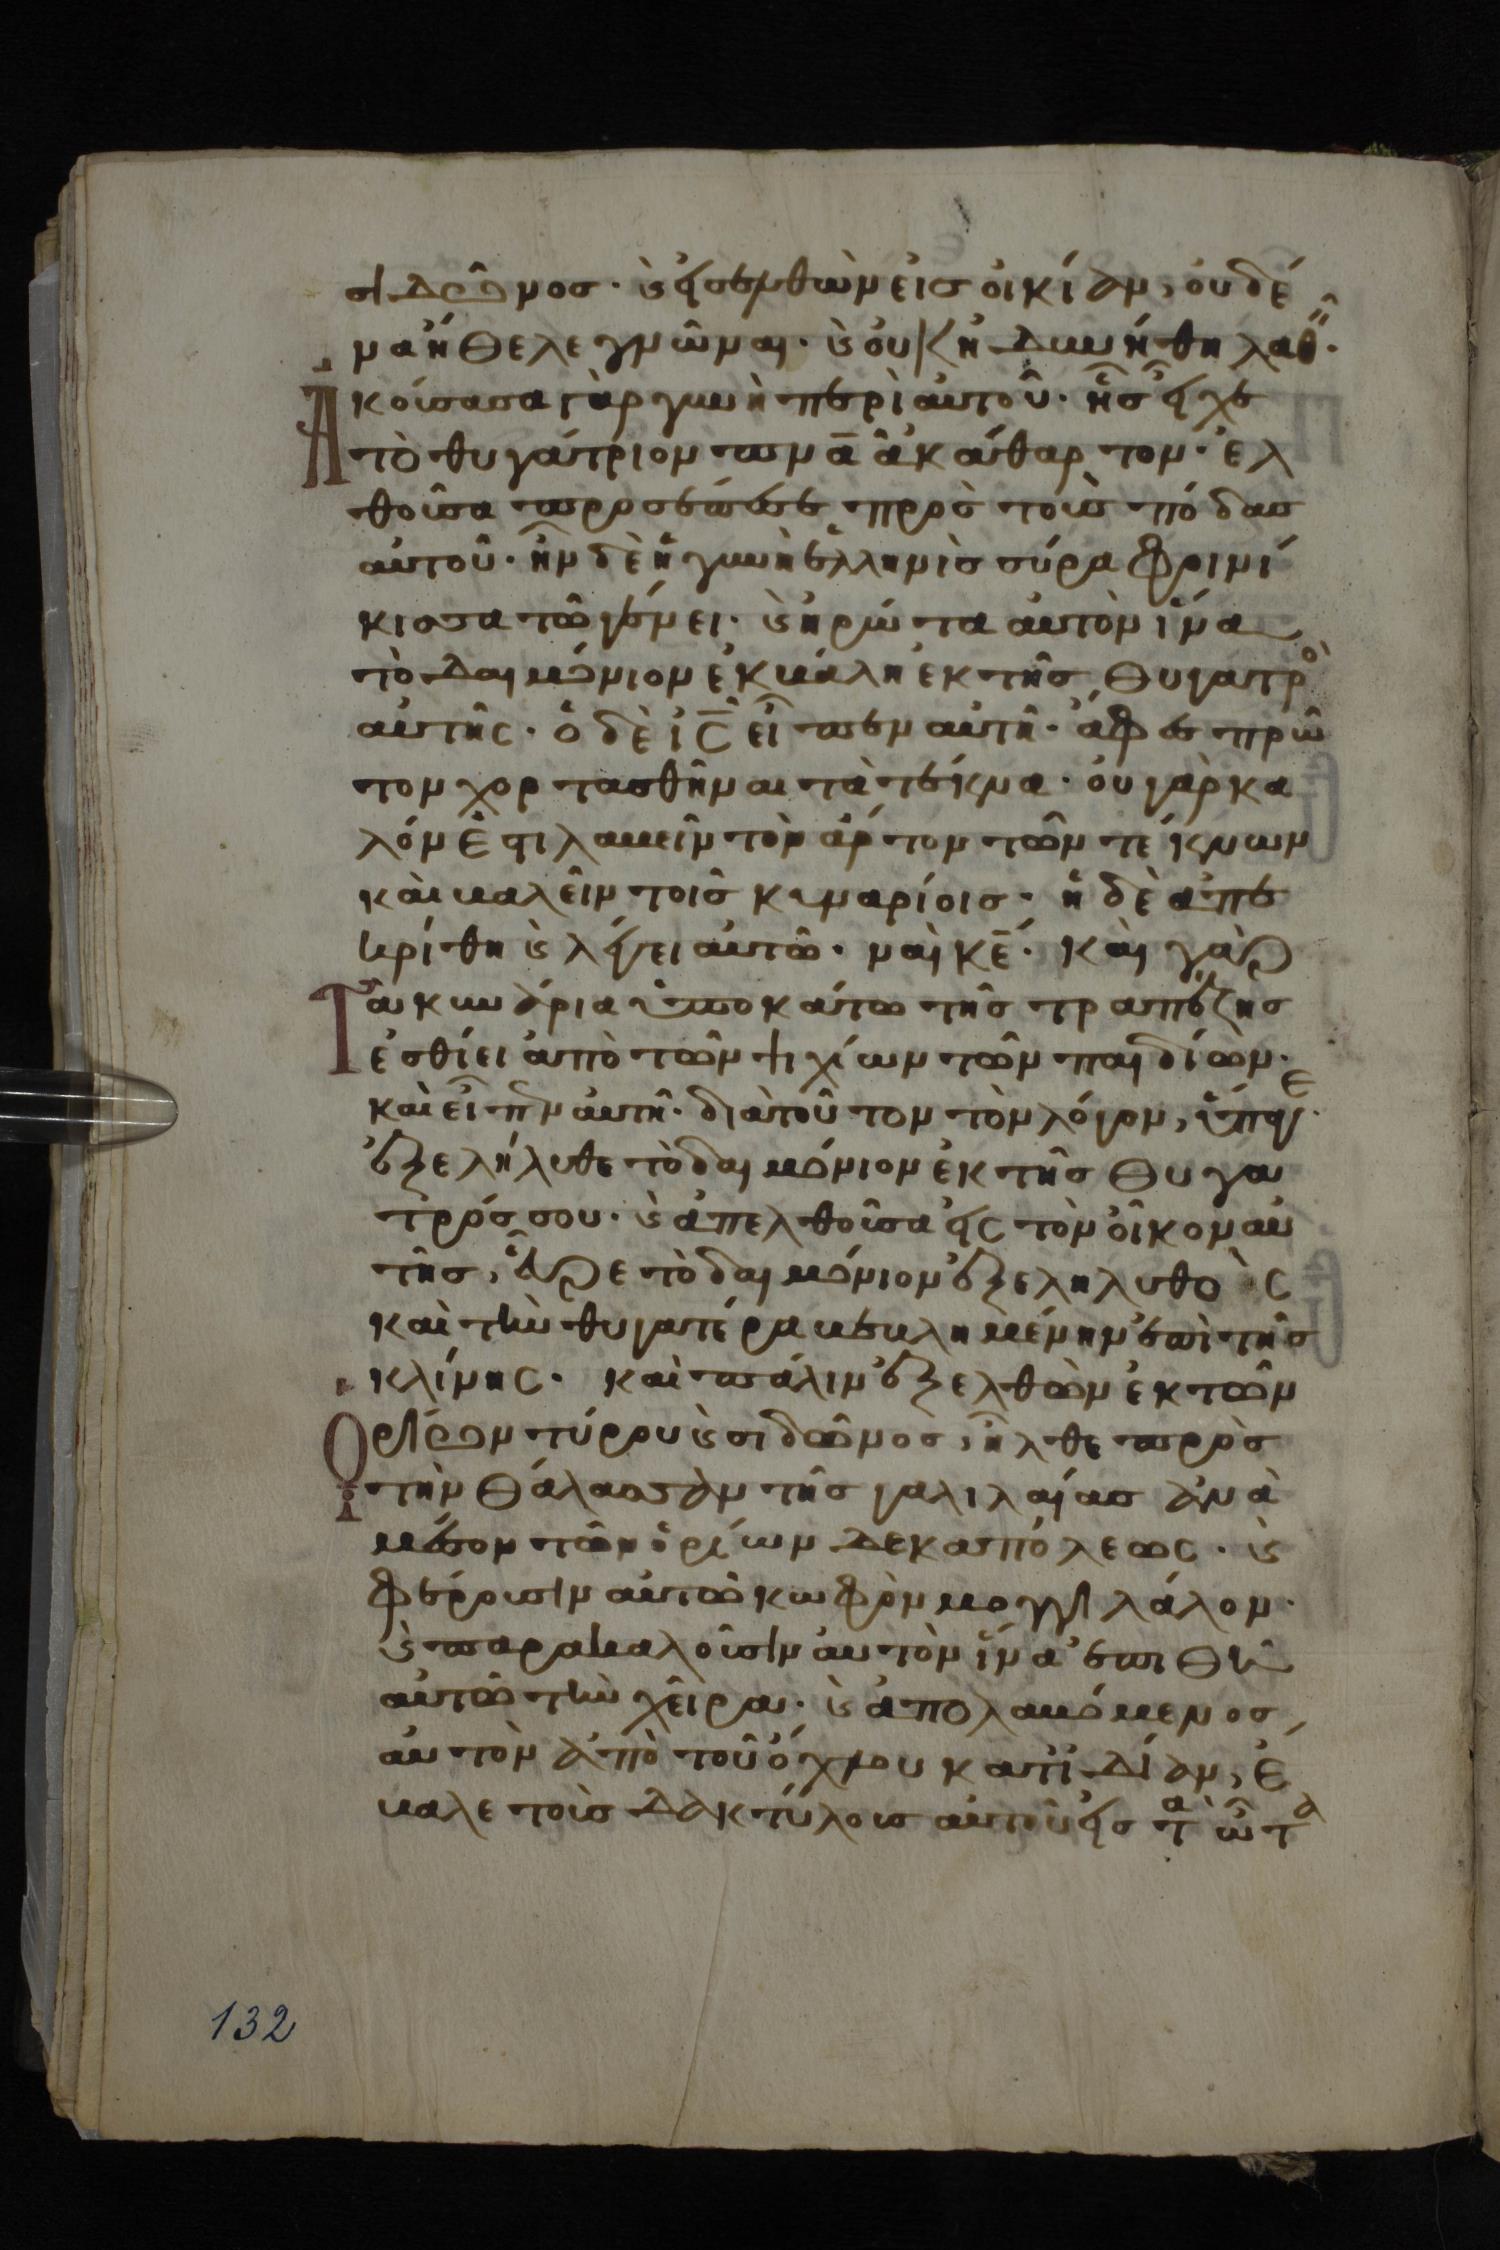 σιδῶνος· καὶ εἰσελθὼν εἰς οἰκίαν, οὐδέ
να ἤθελε γνῶναι· καὶ οὐκ ἠδυνήθη λαθεῖν·
Ἀκούσασα γὰρ γυνὴ περὶ αὐτοῦ· ἧς εἶχε
τὸ θυγάτριον πνᾶ ἀκάθαρτον· ἐλ
θοῦσα προσέπεσε πρὸς τοὺς πόδας
αὐτοῦ· ἦν δὲ ἡ γυνὴ ἑλληνὶς σύρα φοινί
κισσα τῶ γένει· καὶ ἠρώτα αὐτὸν ἵνα
τὸ δαιμόνιον ἐκβάλη ἐκ τῆς θυγατρὸς
αὐτῆς· ὁ δὲ ἰς̄ εἶπεν αὐτῆ· ἄφες πρῶ
τον χορτασθῆναι τὰ τέκνα· οὐ γὰρ κα
λόν ἐστι λαβεῖν τὸν ἄρτον τῶν τέκνων
καὶ βαλεῖν τοῖς κυναρίοις· ἡ δὲ ἀπε
κρίθη καὶ λέγει αὐτῶ· ναὶ κε̄· καὶ γὰρ
Τὰ κυνάρια ὑποκάτω τῆς τραπέζης
ἐσθίει ἀπὸ τῶν ψιχίων τῶν παιδίων·
καὶ εἶπεν αὐτῆ· διὰ τοῦτον τὸν λόγον, ὕπαγε·
ἐξελήλυθε τὸ δαιμόνιον ἐκ τῆς θυγα
τρός σου· καὶ ἀπελθοῦσα εἰς τὸν οἶκον αὐ
τῆς, εὗρε τὸ δαιμόνιον ἐξεληλυθὸς
καὶ τὴν θυγατέρα βεβλημένην ἐπὶ τῆς
κλίνης· καὶ πάλιν ἐξελθὼν ἐκ τῶν
Ὁρίων τύρου καὶ σιδῶνος, ἦλθε πρὸς
τὴν θάλασσαν τῆς γαλιλαίας ἀνὰ
μέσον τῶν ὁρίων δεκαπόλεως· καὶ
φέρουσιν αὐτῶ κωφὸν μογγιλάλον·
καὶ παρακαλοῦσιν αὐτὸν ἵνα ἐπιθῆ
αὐτῶ τὴν χεῖρα· καὶ ἀπολαβόμενος
αὐτὸν ἀπὸ τοῦ ὄχλου κατιδίαν, ἔ
βαλε τοὺς δακτύλους αὐτοῦ εἰς τὰ ὦτα
132